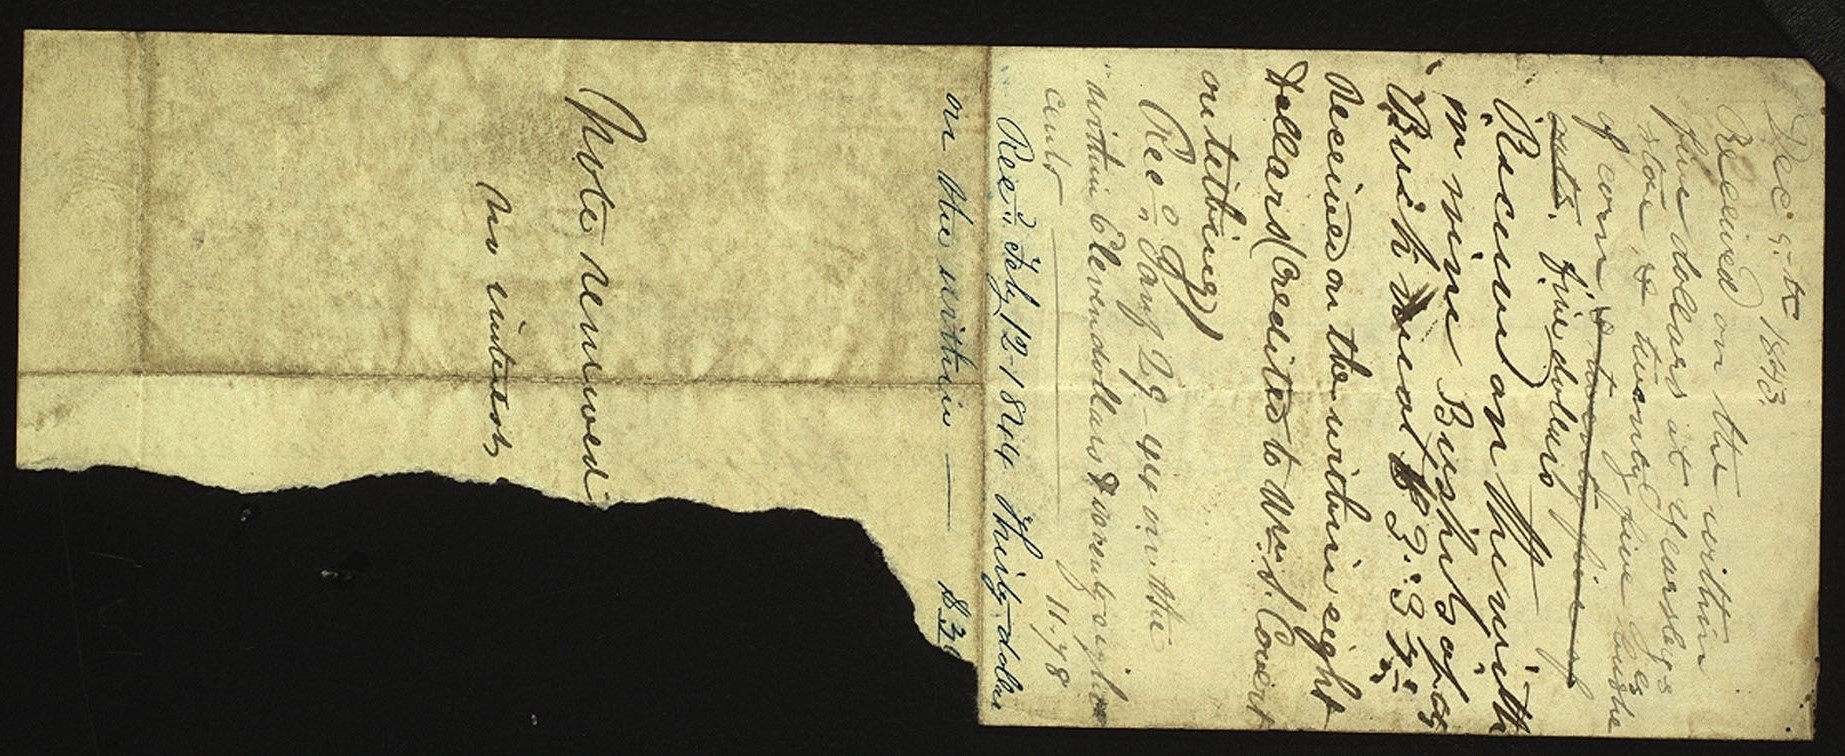 Dec 9th 1843.
Received on the within
five dollars at Yearsleys
store, & twenty five bushe
of corn & twenty five of
oats. five dollars
Received on the with
in nine Bushels of
Bush
Received on the within eight
Dollars (Credited to Wm S. Covert
on tithing)
Recd Jany 29 - 44 on the
within Eleven dollars & seventy eight
cents — 11.78
Recd Feby 12 - 1844 thirty dollar
on the within — $30
Note renewed
no interest